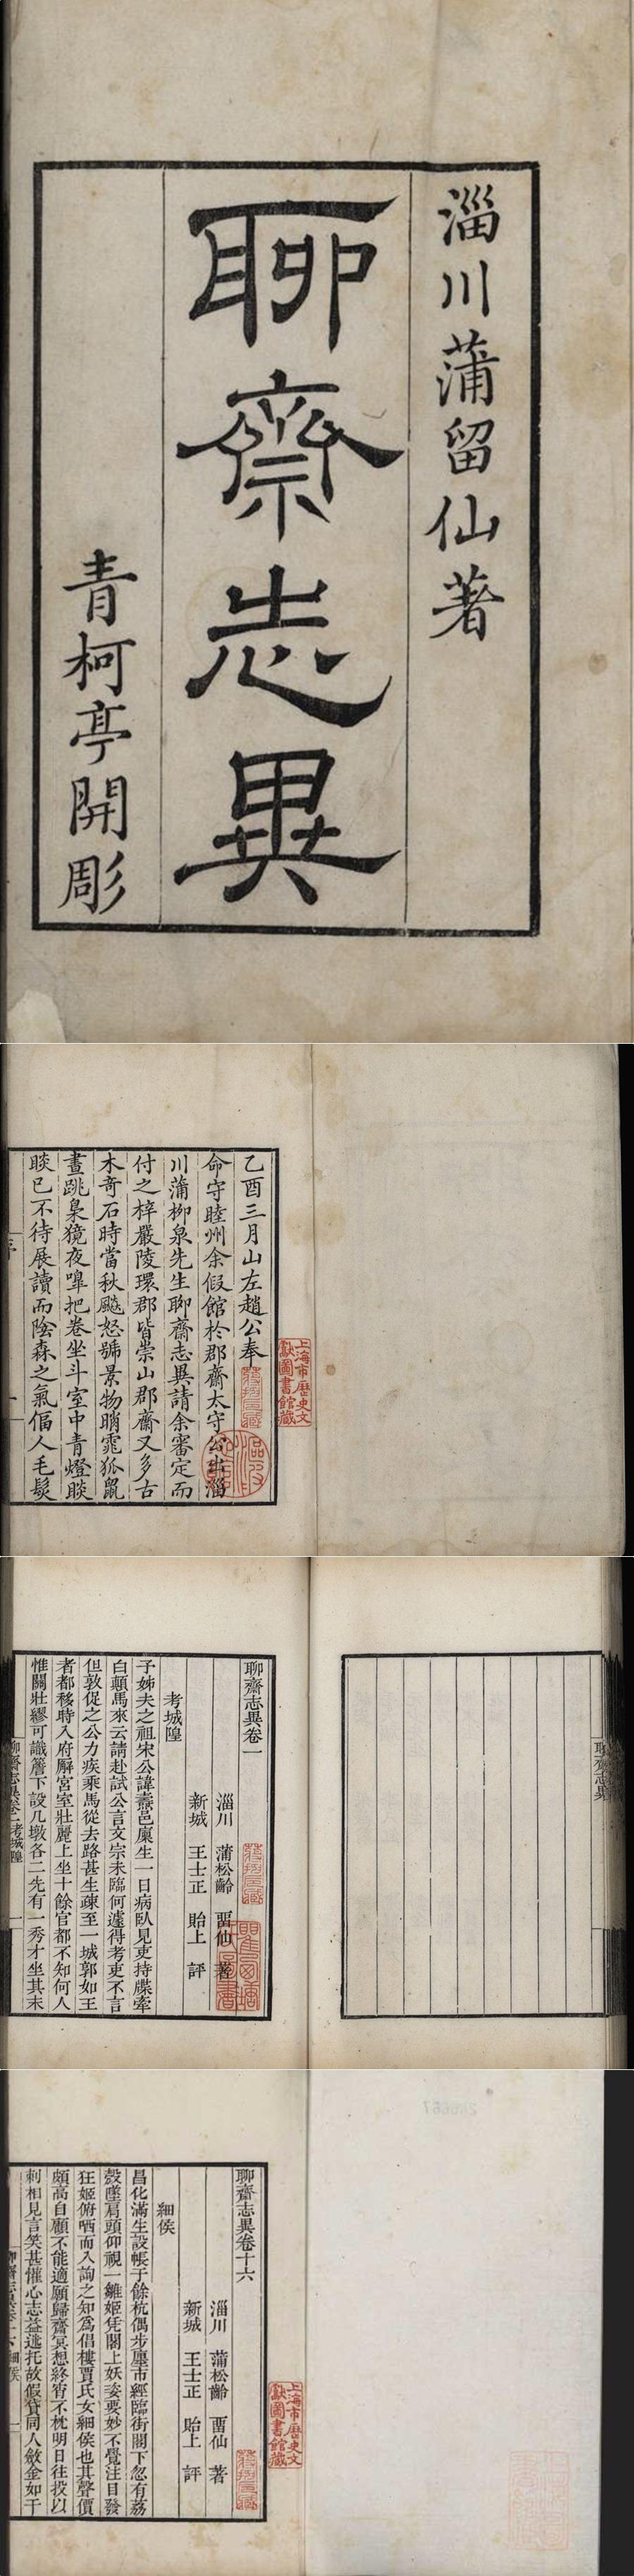 淄川蒲留仙著
聊齋志異
青柯亭開彫
乙酉三月山左趙公奉
命守睦州余假館於郡齋太守公出淄
川蒲柳泉先生聊齋志異請余審定而
付之梓嚴陵環郡皆崇山郡齋又多古
木奇石時當秋飈怒號景物睄窕狐鼠
晝跳梟獍夜嘷把卷坐斗室中青燈睒
睒已不待展讀而陰森之氣偪人毛髮
上海市歷史文
獻圖書館藏
聊齋志異
聊齋志異卷一
淄川 蒲松齡 畱仙 著
新城 王士正 貽上 評
考城隍
予姊夫之祖宋公諱燾邑廩生一日病臥見吏持牒牽
白顛馬來云請赴試公言文宗未臨何遽得考吏不言
但敦促之公力疾乘馬從去路甚生疎至一城郭如王
者都移時入府廨宮室壯麗上坐十餘官都不知何人
惟關壯繆可識簷下設几墩各二先有一秀才坐其末
聊齋志異卷一考城隍 一
聊齋志異卷十六
淄川 蒲松齡 畱仙 著
新城 王士正 貽上 評
細侯
昌化滿生設帳于餘杭偶步廛市經臨街閣下忽有荔
殼墜肩頭仰視一雛姬凭閣上妖姿要妙不覺注目發
狂姬俯哂而入詢之知爲倡樓賈氏女細侯也其聲價
頗高自顧不能適願歸齋冥想終宵不枕明日往投以
刺相見言笑甚懽心志益迷托故假貸同人斂金如干
上海市歷史文
獻圖書館藏